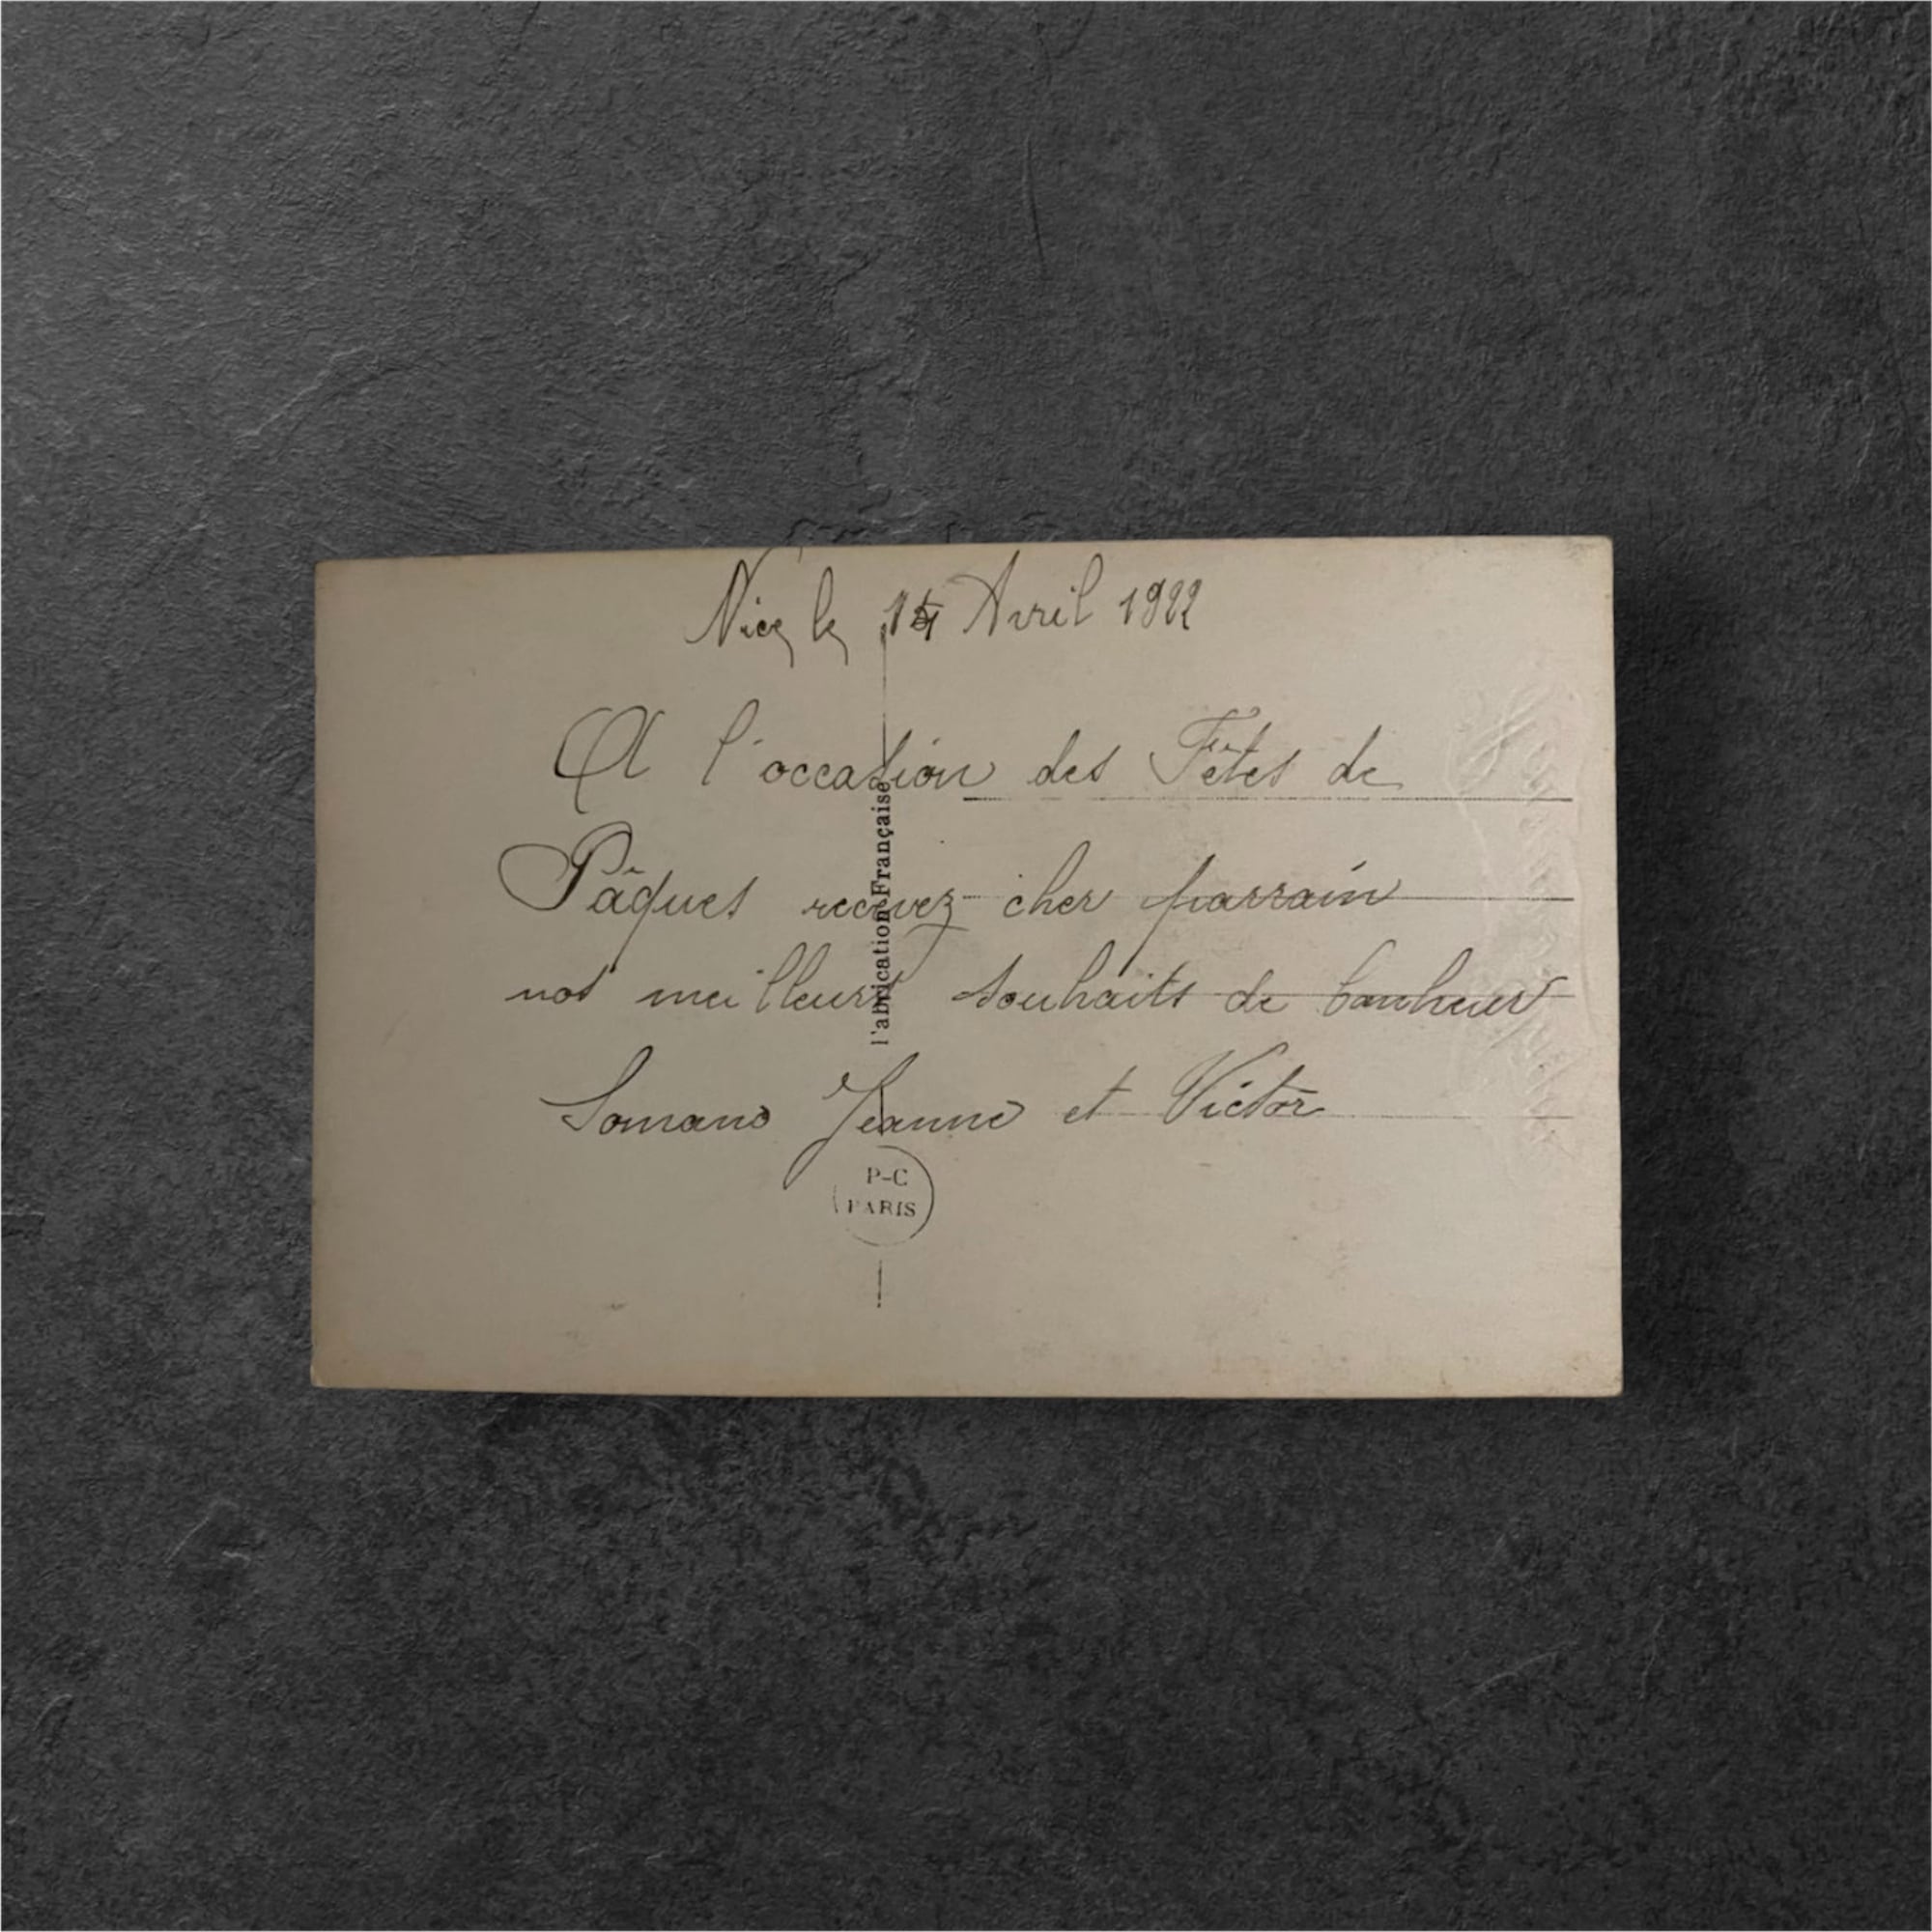 Nice le Avril 1922
A l'occasion des Fêtes de
Pâques recevez cher parrain
nos meilleurs souhaits de bonheur
Somano Jeanne et Victor
Fabrication Française
P-C
PARIS